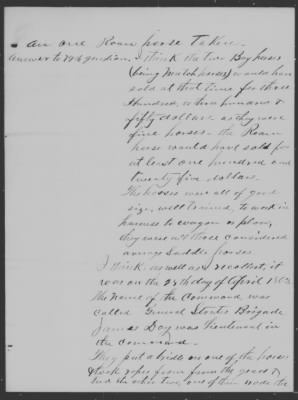 an one Roan horse Taken.
Answer to 7th question, I think the two Bay horses
(being Match horses) would have
sold at that time for three
Hundred,
fifty dollars as they were
fine horses. the Roan
horse would have sold for
at least one hundred and
twenty five dollars.
The horses were all of good
size, well trained, to work in
harness to wagon or plow,
they were all three considered
average Saddle horses.
I think, as well as I recollect, it
was on the 28th day of April 186
The Name of the Command was
called General Brigade
James Doy was Lieutenant in
the command.
They put a bridle on one of the horses
& took ropes from the gears &
led the other two, one of them rode the